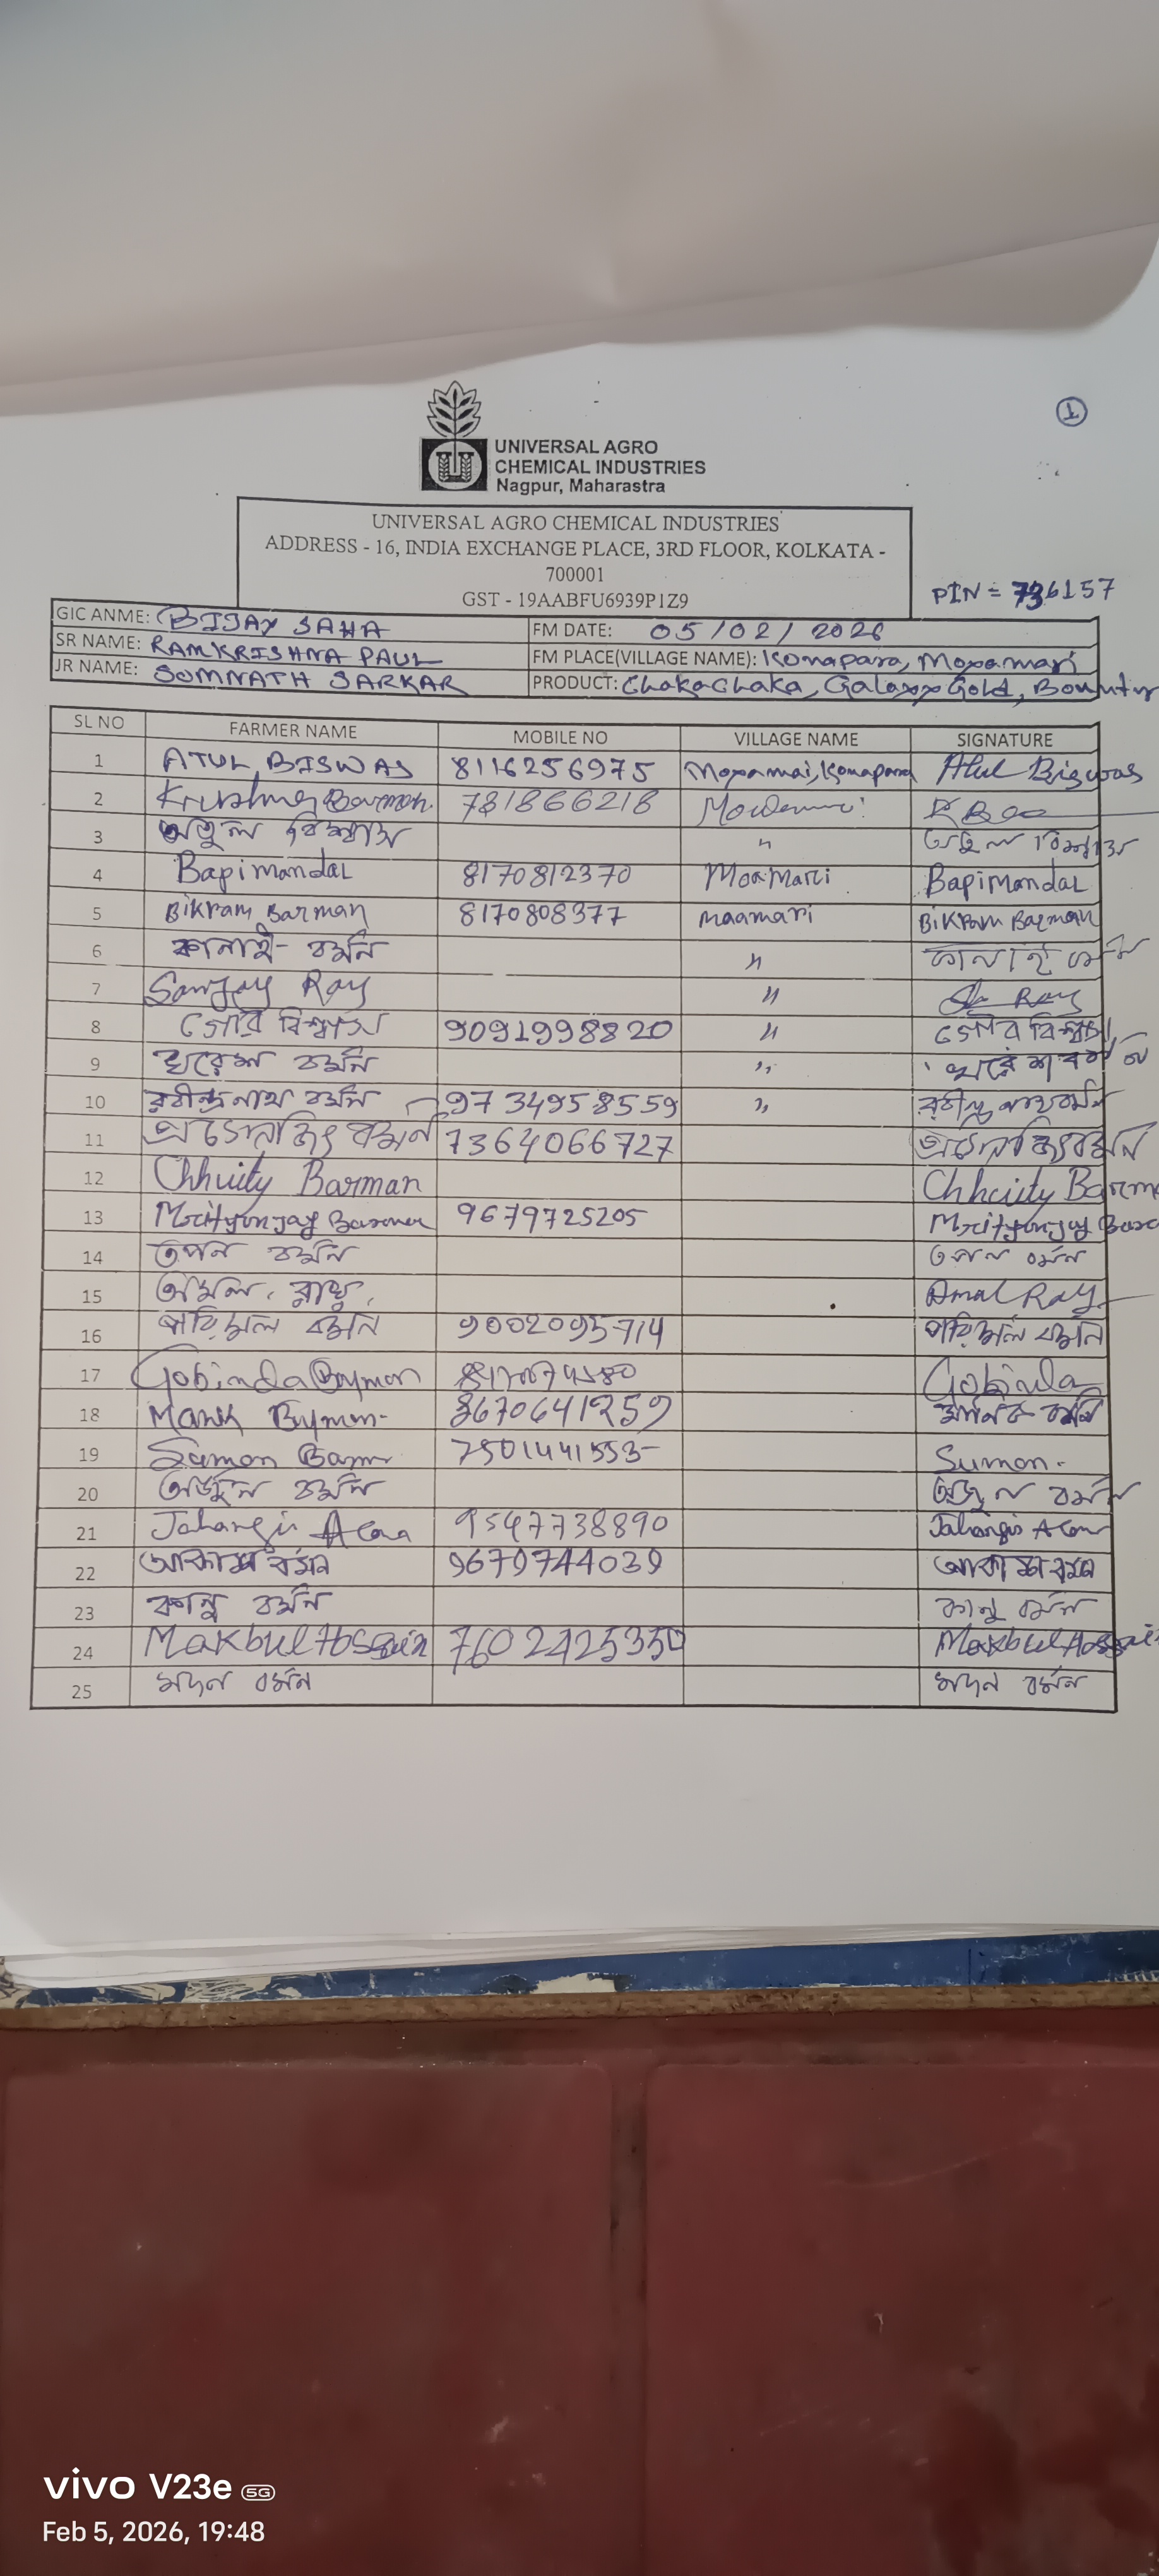 1
UNIVERSAL AGRO
CHEMICAL INDUSTRIES
Nagpur, Maharastra
UNIVERSAL AGRO CHEMICAL INDUSTRIES
ADDRESS - 16, INDIA EXCHANGE PLACE, 3RD FLOOR, KOLKATA -
700001
GST - 19AABFU6939P1Z9
PIN = 736157
GIC ANME: BIJAY SAHA FM DATE: 05/02/2026
SR NAME: RAMKRISHNA PAUL FM PLACE(VILLAGE NAME): Konapara, Moyamari
JR NAME: SOMNATH SARKAR PRODUCT: Chaka Chaka, Galaxy Gold,
SL NO FARMER NAME MOBILE NO VILLAGE NAME SIGNATURE
1 ATUL BISWAS 8116256975 Konapara Atul Biswas
2 Barman. 781866218
3 অতুল বিশ্বাস " অতুল বিশ্বাস
4 Bapi Mandal 8170812370 Bapi Mandal
5 Bikram Barman 8170808377 maamari Bikram Barman
6 কানাই বর্মন " কানাই বর্মন
7 Sanjay Ray " Ray
8 গৌর বিশ্বাস 9091998820 " গৌর বিশ্বাস
9 বর্মন "
10 রবীন্দ্রনাথ বর্মন 9734958559 " রবীন্দ্রনাথ বর্মন
11 প্রসেনজিৎ বর্মন 7364066727 প্রসেনজিৎ বর্মন
12 Barman
13 Mrityunjay 9679725205 Mrityunjay
14 তপন বর্মন তপন বর্মন
15 অমল রায় Amal Ray
16 পরিমল বর্মন 9002095714 পরিমল বর্মন
17 Gobinda Gobinda
18 8670641259 মানিক বর্মন
19 Sumon 7501441553 Sumon
20 অর্জুন বর্মন অর্জুন বর্মন
21 Jahangir 9547738890 Jahangir
22 আকাশ বর্মন 9679744039 আকাশ বর্মন
23 কানু বর্মন কানু বর্মন
24 Makbul Hossain 7602425350 Makbul Hossain
25 মদন বর্মন মদন বর্মন
vivo V23e 5G
Feb 5, 2026, 19:48